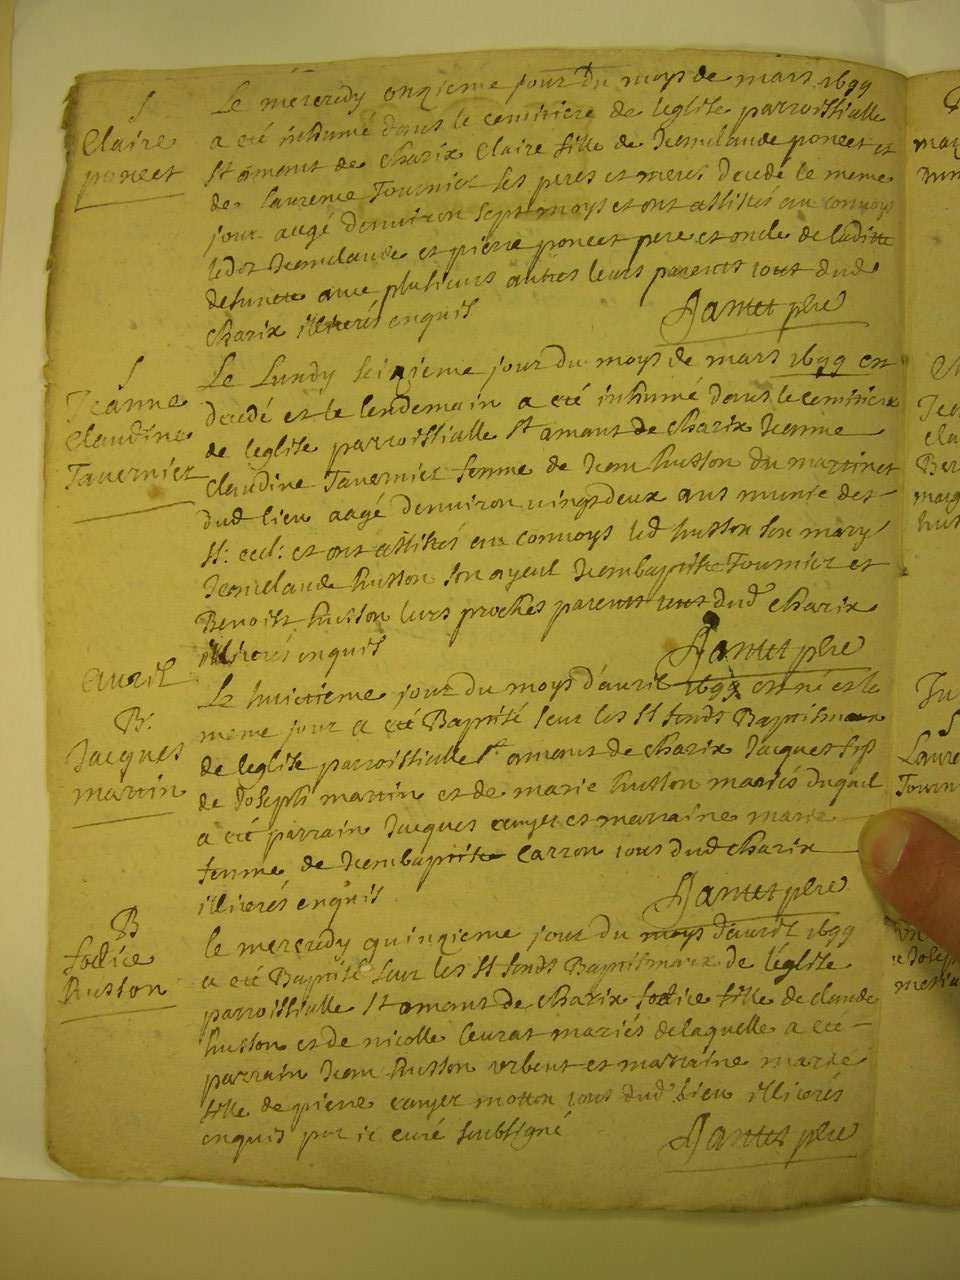 S
Claire
poncet
Le mercredy onzieme jour du moys de mars 1699
a eté inhumé dans le cemitiere de leglise parroissialle
st amant de charix Claire fille de Jeanclaude poncet et
de laurence Tournier ses peres et meres decedé le meme
jour aagé denviron sept moys et ont assistés au convoys
ledit Jeanclaude et pierre poncet pere et oncle de laditte
defuncte avec plusieurs autres leurs parents tous dud
charix illiterés enquis
Jantet ptre
S
Jeanne
Claudine
Tavernier
Le Lundy seizieme jour du moys de mars 1699 est
decedé et le lendemain a eté inhumé dans le cemitiere
de leglise parroissialle st amant de charix Jeanne
claudine Tavernier femme de Jean husson du martinet
dud lieu aagé denviron vingsdeux ans munie des
st: eccl: et ont assistés au convoys led husson son mary
Jeanclaude husson son ayeul Jeanbaptiste Tournier et
Benoist husson leurs proches parents tous dud charix
illiterés enquis
Jantet ptre
Avril
B:
Jacques
martin
Le huictieme jour du moys davril 1699 est né et le
meme jour a eté Baptisé seur les st fonds Baptismaux
de leglise parroissialle st amant de charix Jacques fils
de Joseph martin et de marie husson mariés dugail
a eté parrain Jacques et marraine marie
femme de Jeanbaptiste Carron tous dud charix
illiterés enquis
Jantet ptre
B
fodice
husson
le mercredy quinzieme jour du moys davril 1699
a eté Baptisé sur les st fonds Baptismaux de léglise
parroissialle st amant de charix fodice fille de claude
husson et de nicolle leurat mariés de laquelle a eté
parrain Jean husson et marraine marie
fille de pierre motton tous dud lieu illiterés
enquis par ie curé soubsigné
Jantet ptre